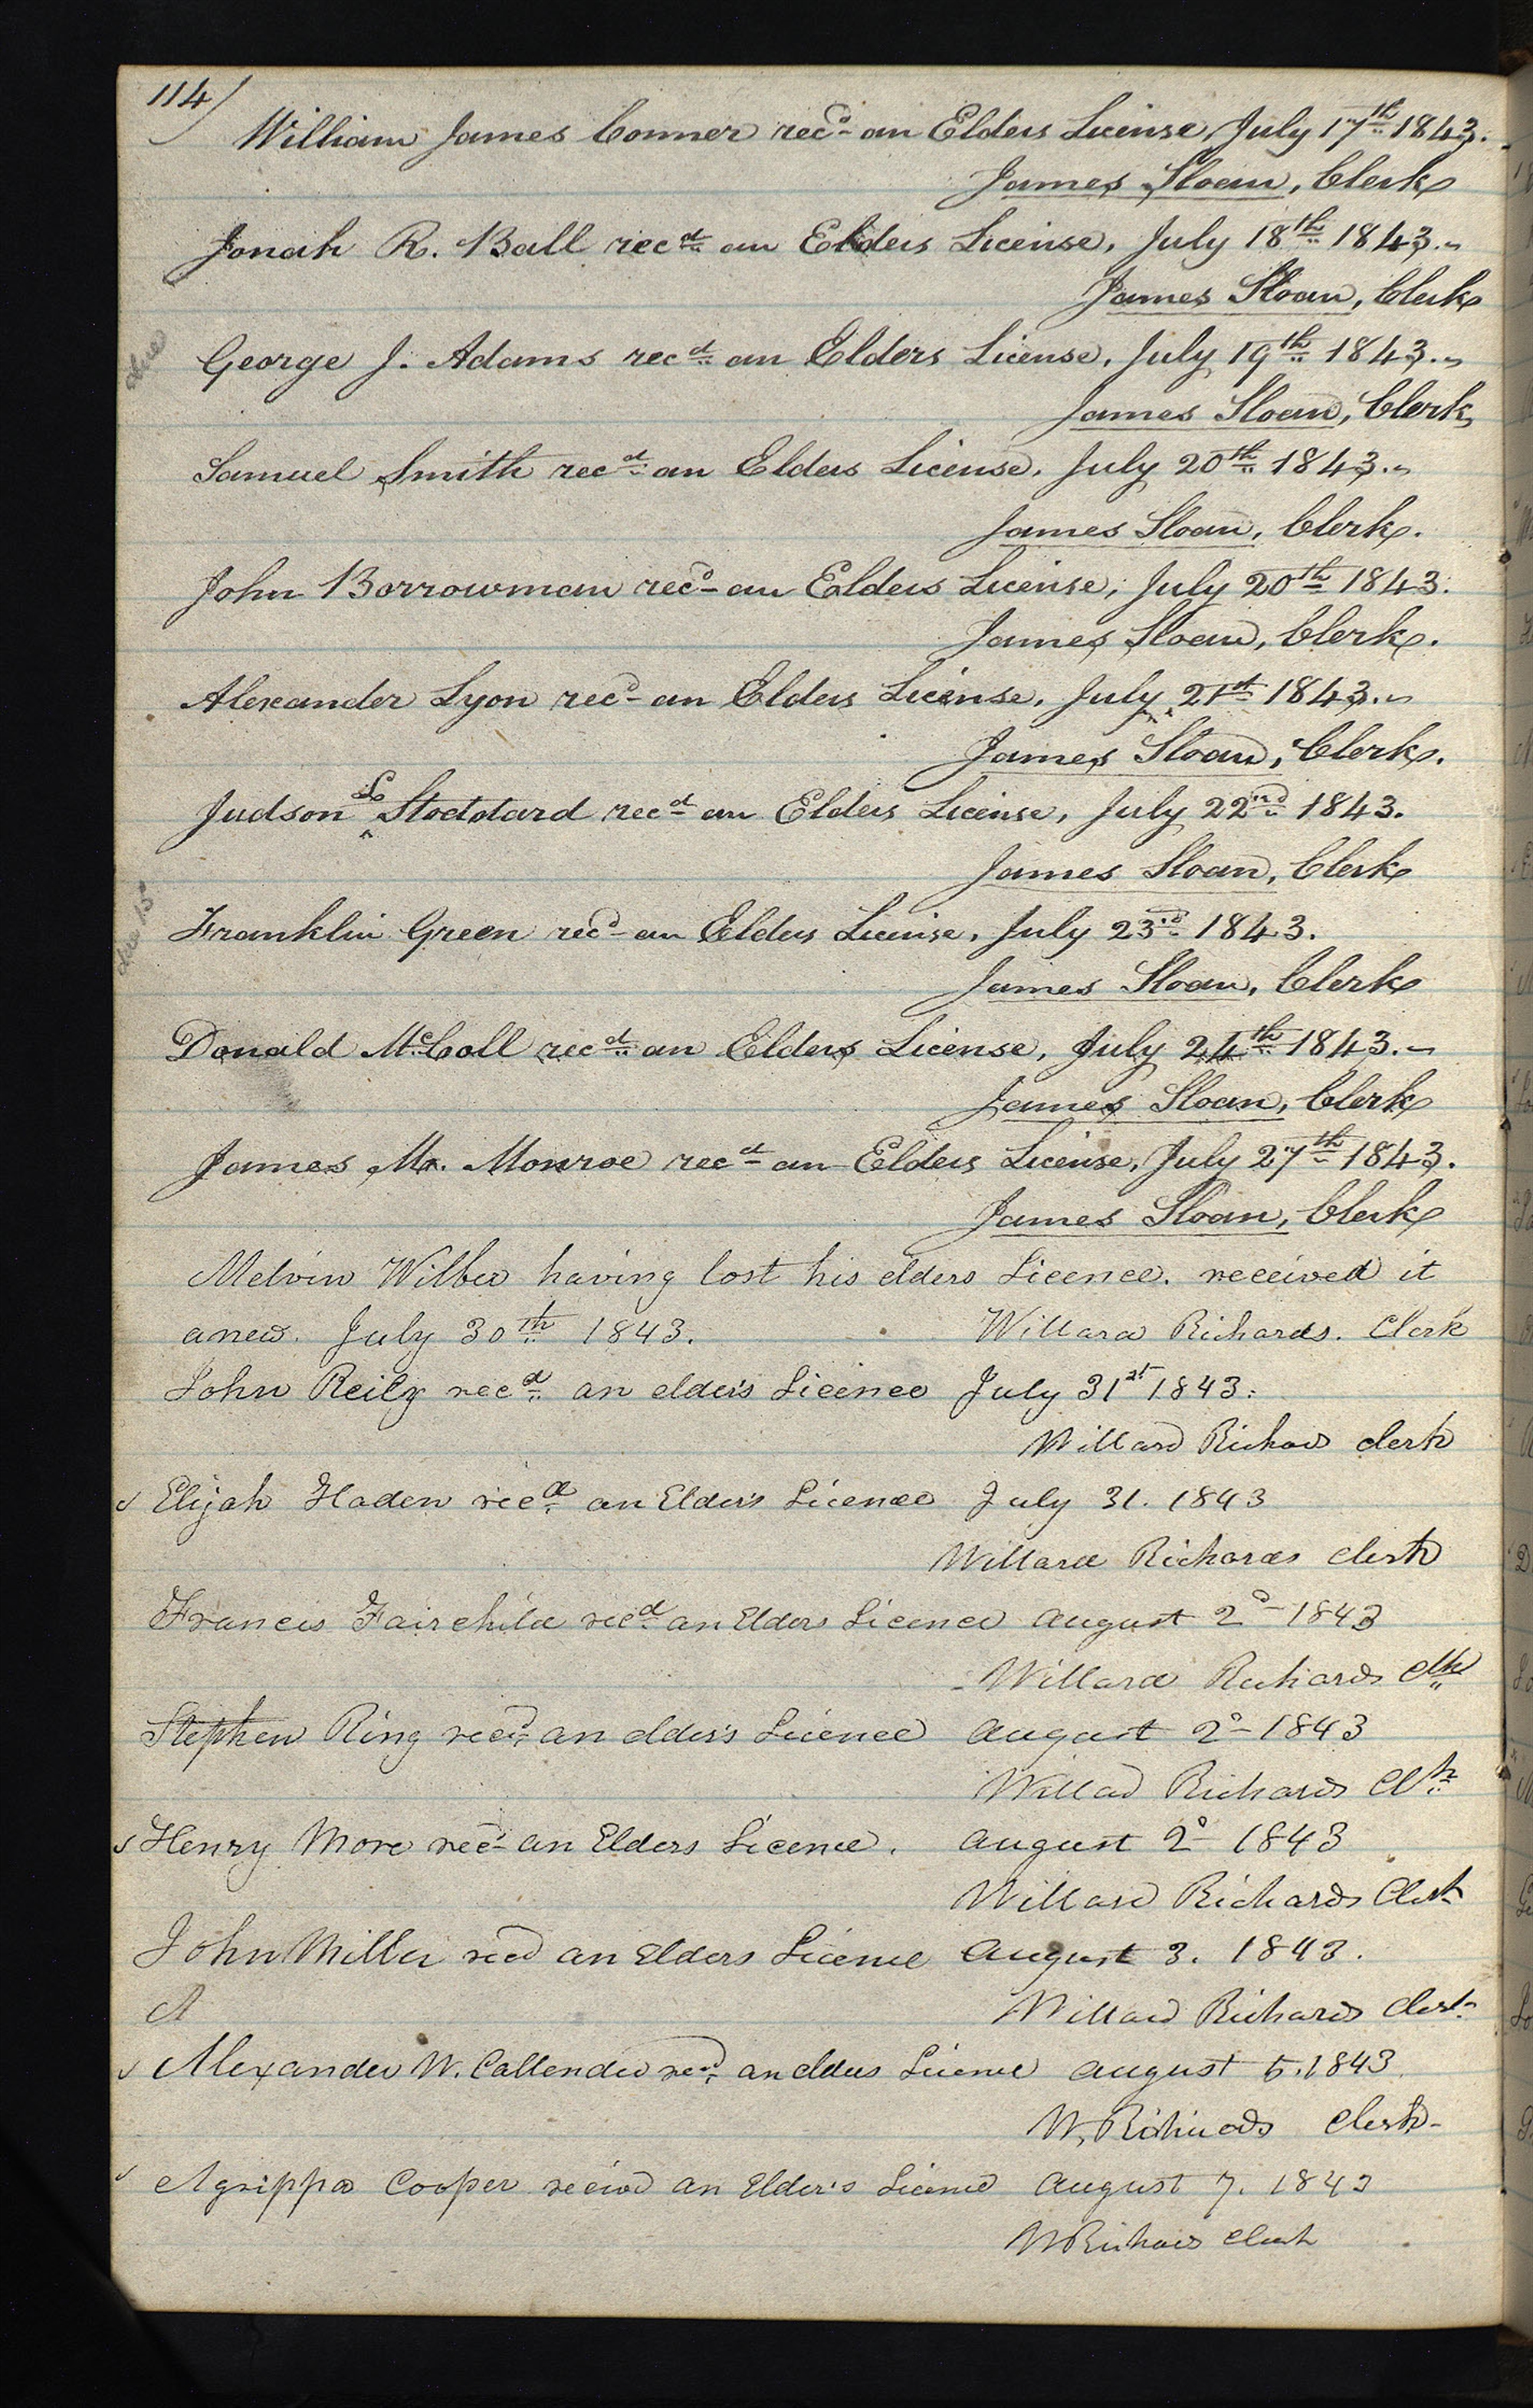 114/
William James Conner recd an Elders License, July 17th 1843.
James Sloan, Clerk
Jonah R. Ball recd an Elders License, July 18th 1843.
James Sloan, Clerk
George J. Adams recd an Elders License, July 19th 1843.
James Sloan, Clerk
Samuel Smith recd an Elders License, July 20th 1843.
James Sloan, Clerk.
John Borrowman recd an Elders License, July 20th 1843.
James Sloan, Clerk.
Alexander Lyon recd an Elders License, July 21st 1843.
James Sloan, Clerk.
Judson L Stoddard recd an Elders License, July 22nd 1843.
James Sloan, Clerk
Franklin Green recd an Elders License, July 23rd 1843.
James Sloan, Clerk
Donald McColl recd an Elders License, July 24th 1843.
James Sloan, Clerk
James M. Monroe recd an Elders License, July 27th 1843.
James Sloan, Clerk
Melvin Wilber having lost his elders Licence. received it
anew. July 30th 1843. Willard Richards. Clerk
John Reily recd an elders Licence July 31st 1843.
Willard Richards clerk
Elijah Haden recd an Elder's Licence July 31. 1843
Willard Richards clerk
Francis Fairchild recd an Elders Licence August 2d 1843
Willard Richards Clk
Stephen Ring recd an elder's Licence August 2d 1843
Willard Richards Clk
Henry More recd an Elders Licence. August 2d 1843
Willard Richards Clerk
John Miller recd an Elders Licence August 3. 1843.
A Willard Richards Clerk
Alexander W. Callender recd an elders Licence August 5. 1843.
W. Richards Clerk
Agrippa Cooper recievd an Elder's Licence August 7. 1843
W Richards Clerk